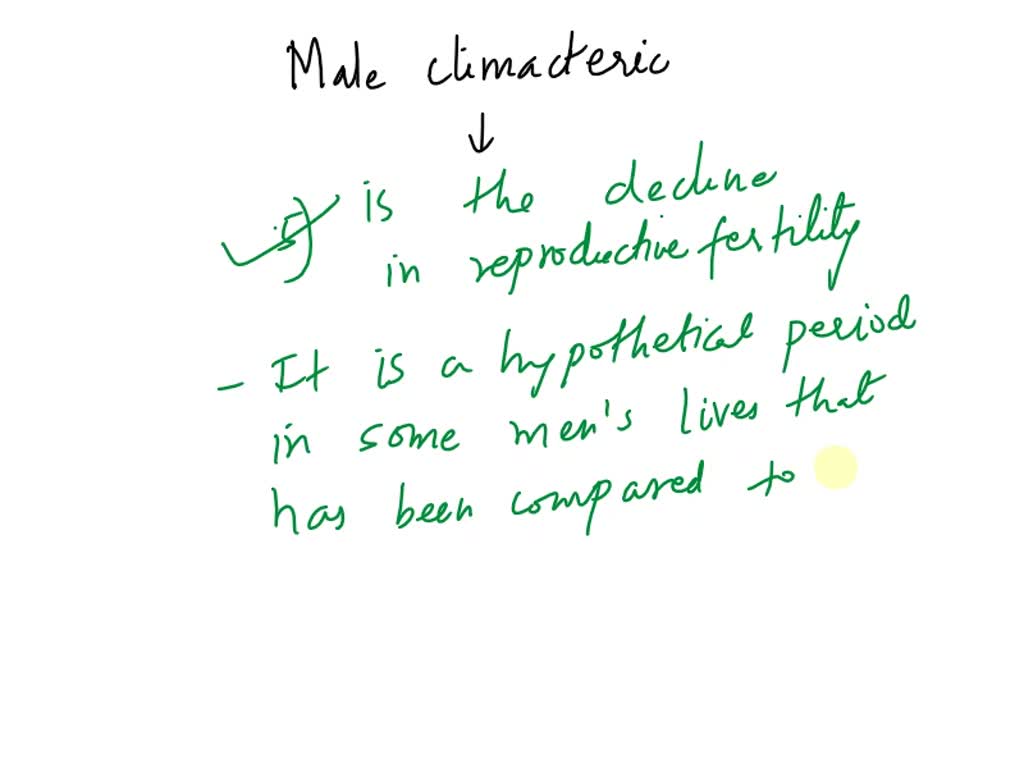 Male climacteric
↓
5) is the decline
in reproductive fertility
- It is a hypothetical period
in some men's lives that
has been compared to